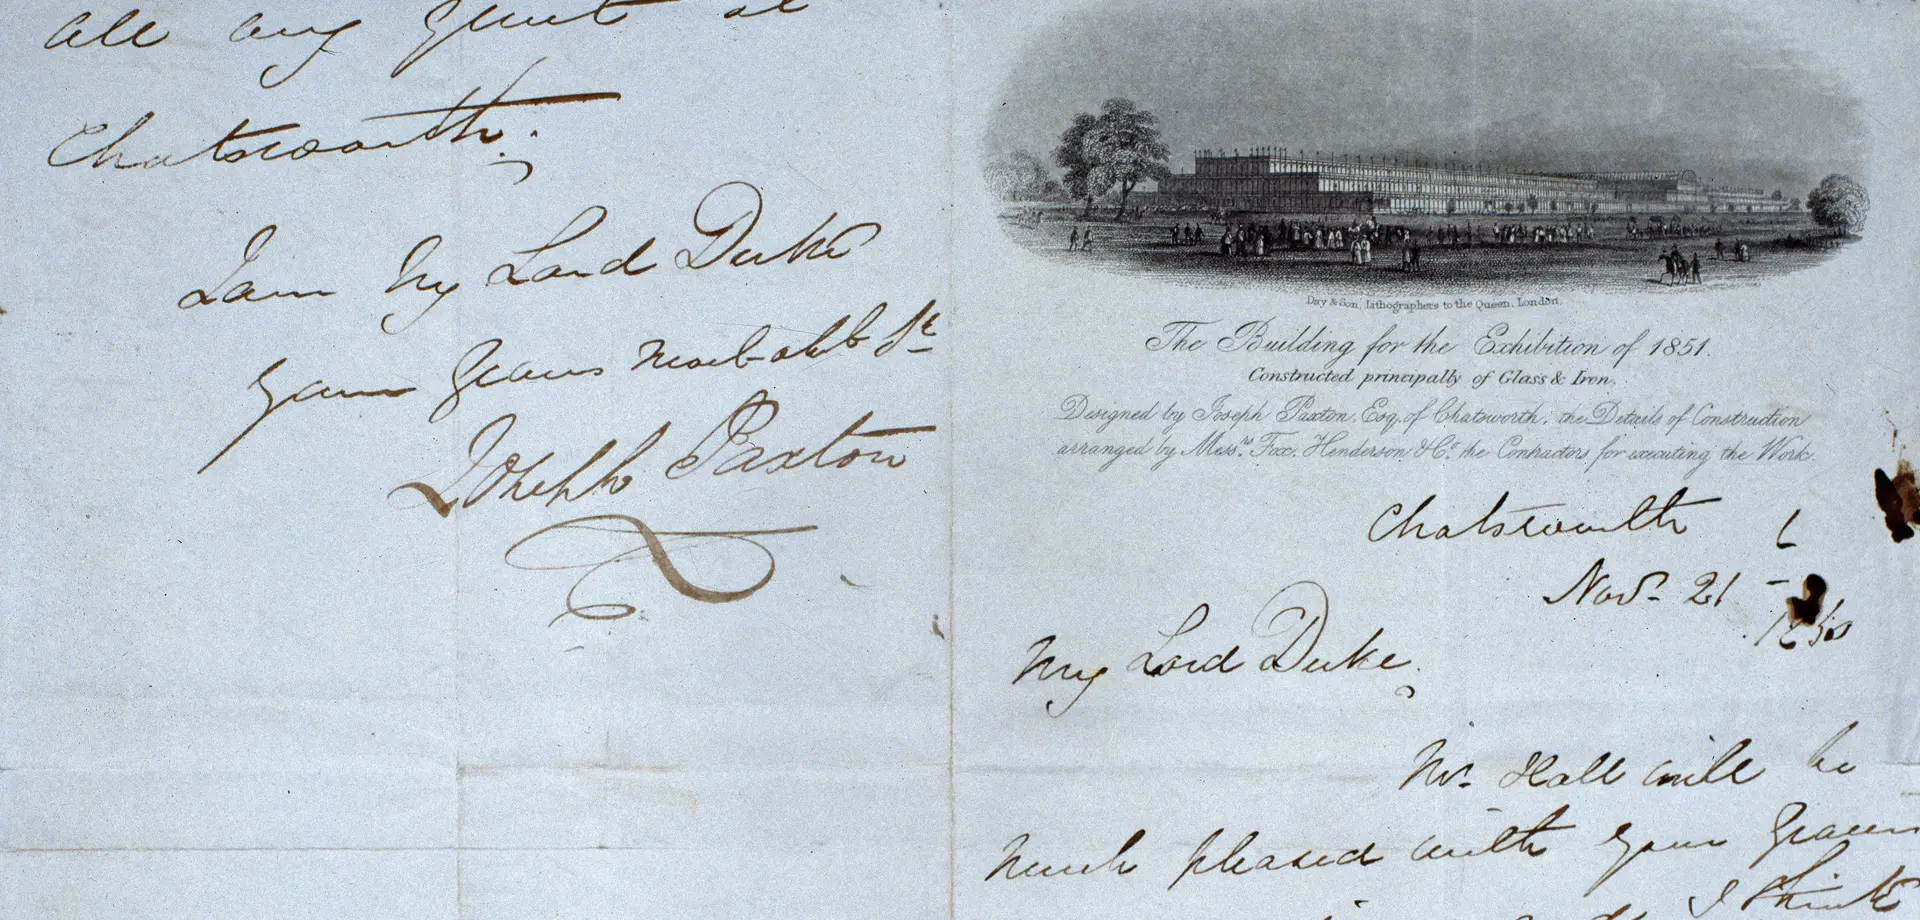 all any great at
Chatsworth.
I am My Lord Duke
Your Graces most obdt St
Joseph Paxton
Day & Son, Lithographers to the Queen, London.
The Building for the Exhibition of 1851.
Constructed principally of Glass & Iron.
Designed by Joseph Paxton, Esq. of Chatsworth; the Details of Construction
arranged by Messrs. Fox, Henderson & Co. the Contractors for executing the Work.
Chatsworth
Novr. 21
1850
My Lord Duke.
Mr. Hall will be
much pleased with your Graces
I think